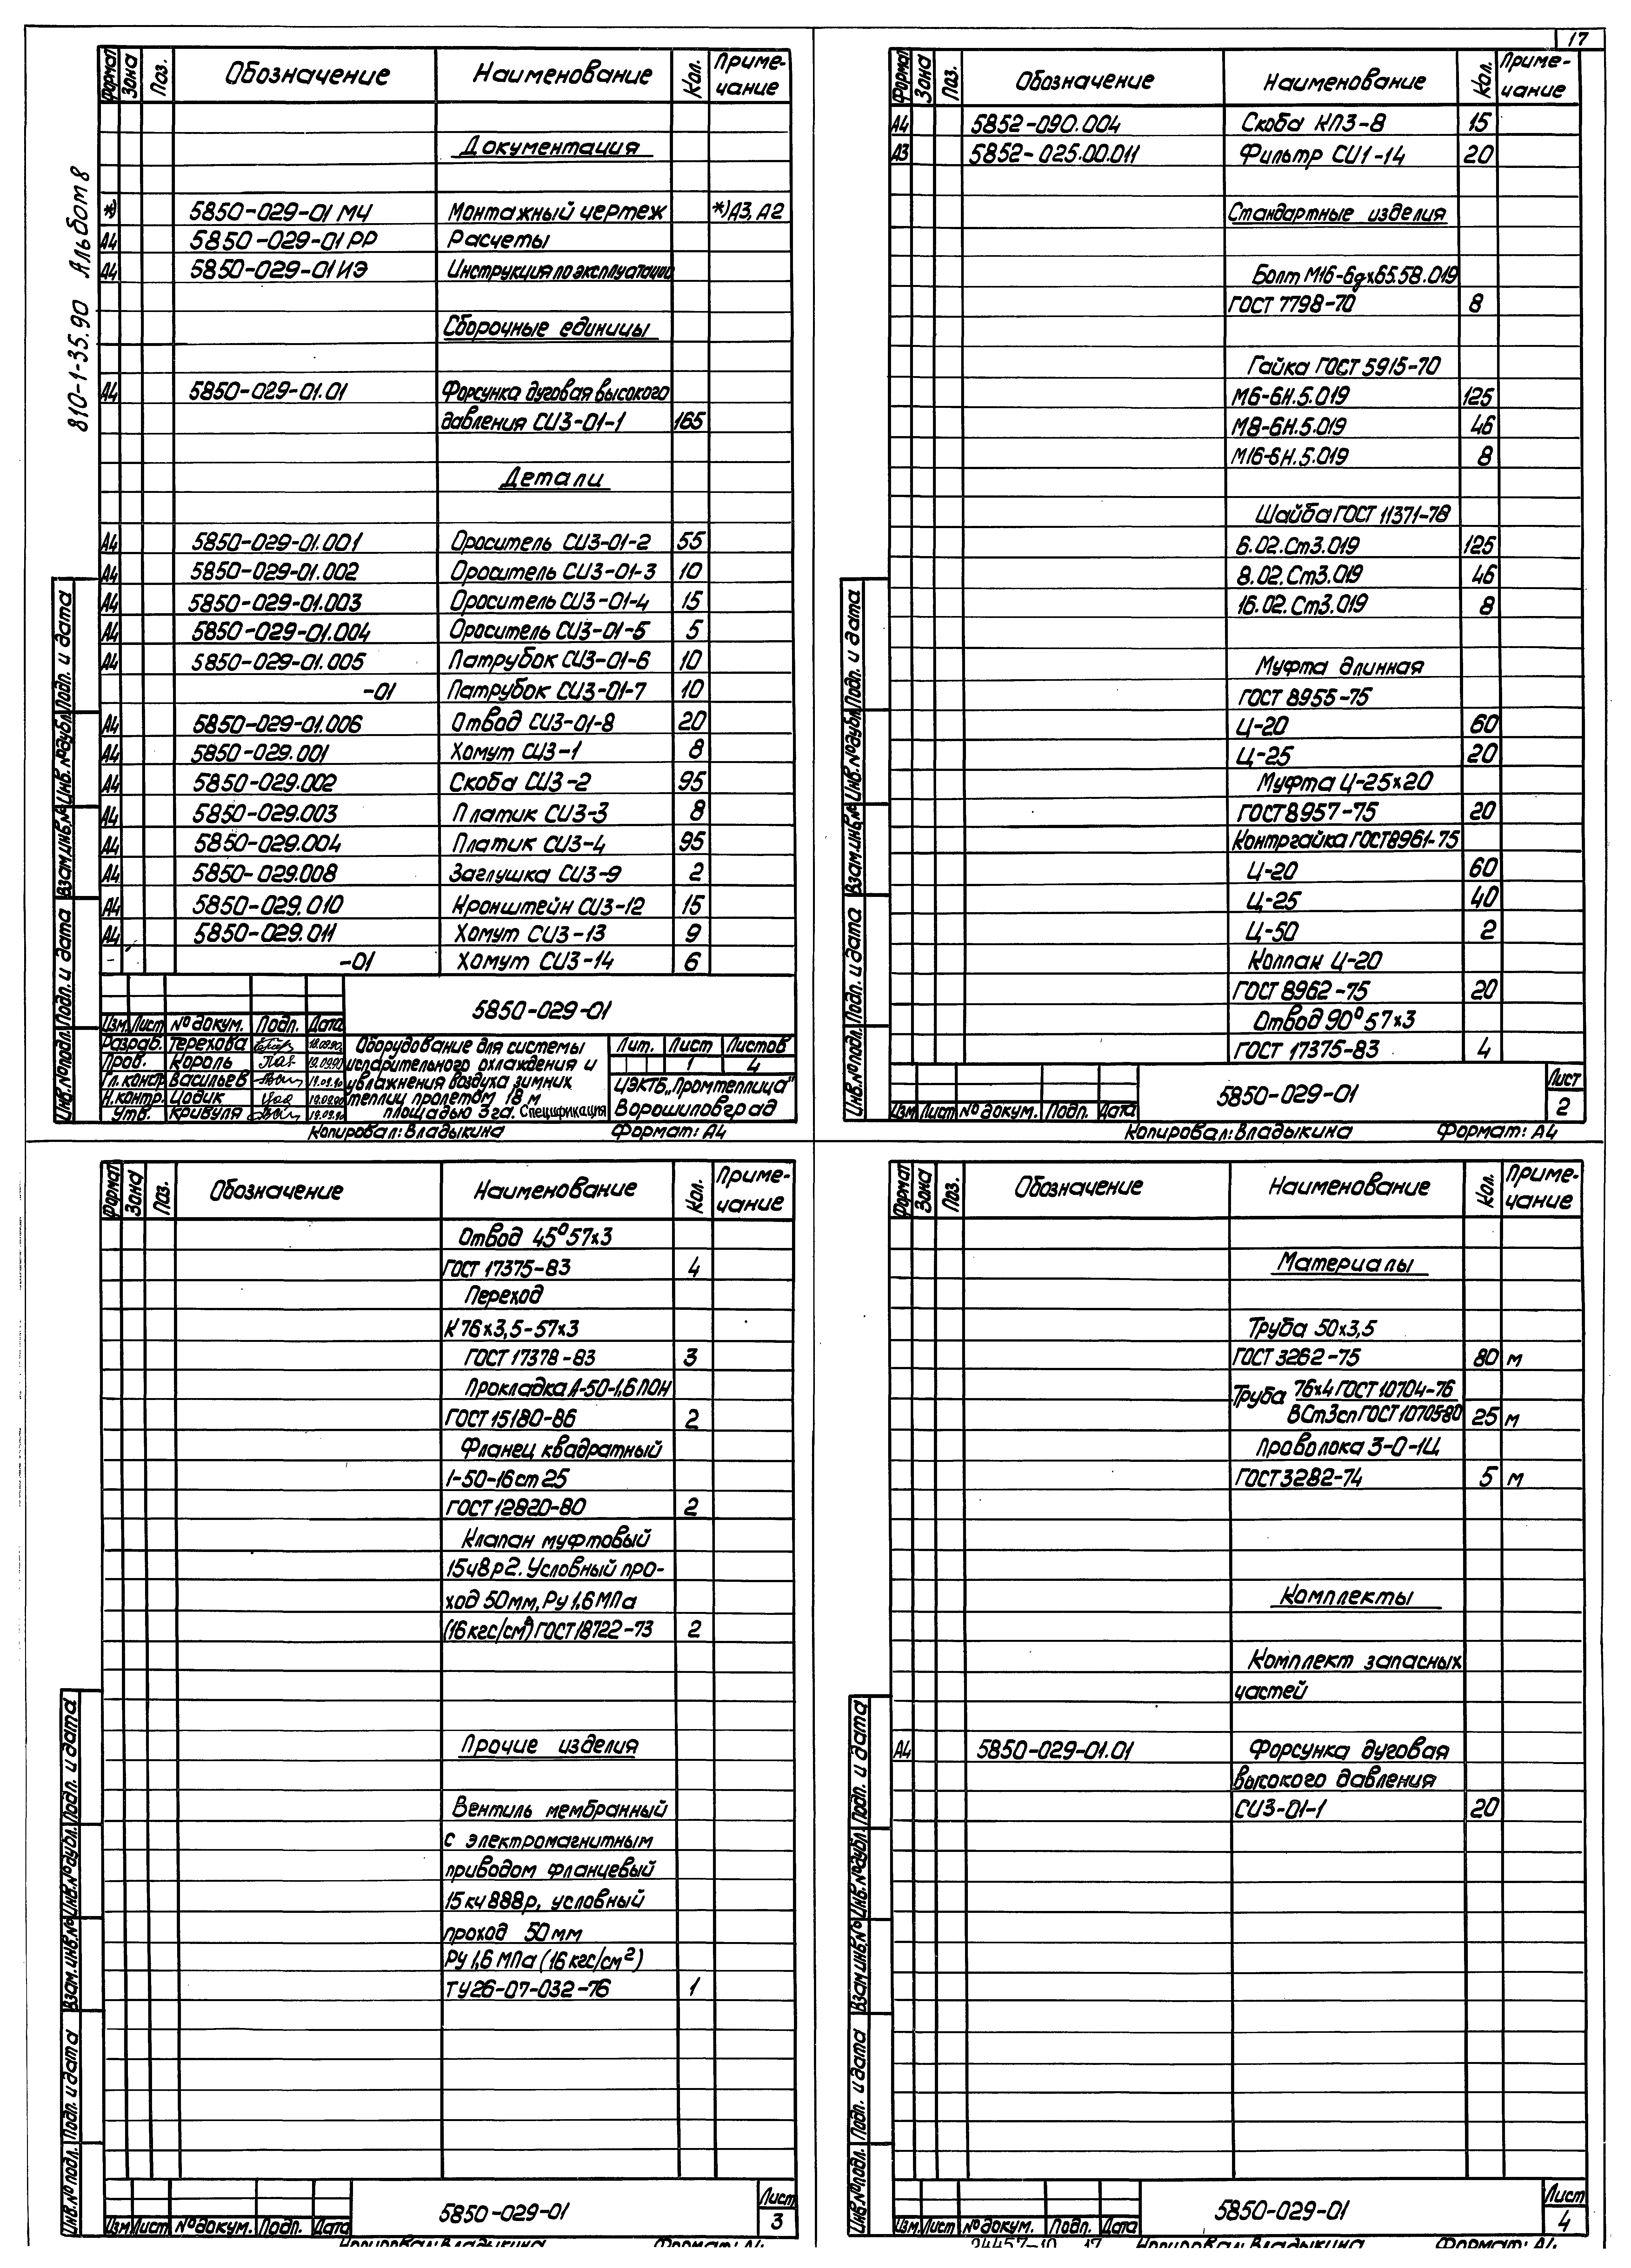 17
810-1-35.90 Альбом 8
Формат Зона Поз. Обозначение Наименование Кол. Приме-
чание
Документация
*) 5850-029-01 МЧ Монтажный чертеж *) А3, А2
А4 5850-029-01 РР Расчеты
А4 5850-029-01 ИЭ Инструкция по эксплуатации
Сборочные единицы
А4 5850-029-01.01 Форсунка дуговая высокого
давления СИЗ-01-1 165
Детали
А4 5850-029-01.001 Ороситель СИЗ-01-2 55
А4 5850-029-01.002 Ороситель СИЗ-01-3 10
А4 5850-029-01.003 Ороситель СИЗ-01-4 15
А4 5850-029-01.004 Ороситель СИЗ-01-5 5
А4 5850-029-01.005 Патрубок СИЗ-01-6 10
-01 Патрубок СИЗ-01-7 10
А4 5850-029-01.006 Отвод СИЗ-01-8 20
А4 5850-029.001 Хомут СИЗ-1 8
А4 5850-029.002 Скоба СИЗ-2 95
А4 5850-029.003 Платик СИЗ-3 8
А4 5850-029.004 Платик СИЗ-4 95
А4 5850-029.008 Заглушка СИЗ-9 2
А4 5850-029.010 Кронштейн СИЗ-12 15
А4 5850-029.011 Хомут СИЗ-13 9
- -01 Хомут СИЗ-14 6
Инв.№ подл. Подп. и дата Взам.инв.№ Инв.№ дубл. Подп. и дата
5850-029-01
Изм. Лист № докум. Подп. Дата
Разраб. Терехова
Пров. Король
Гл. констр. Васильев
Н.контр. Цодик
Утв. Кривуля
Оборудование для системы
испарительного охлаждения и
увлажнения воздуха зимних
теплиц пролетом 18 м
площадью 3 га. Спецификация
Лит. Лист Листов
1 4
ЦЭКТБ „Промтеплица"
Ворошиловград
Копировал: Владыкина Формат: А4
Формат Зона Поз. Обозначение Наименование Кол. Приме-
чание
А4 5852-090.004 Скоба КПЗ-8 15
А3 5852-025.00.011 Фильтр СИ1-14 20
Стандартные изделия
Болт М16-6gх65.58.019
ГОСТ 7798-70 8
Гайка ГОСТ 5915-70
М6-6Н.5.019 125
М8-6Н.5.019 46
М16-6Н.5.019 8
Шайба ГОСТ 11371-78
6.02.Ст3.019 125
8.02.Ст3.019 46
16.02.Ст3.019 8
Муфта длинная
ГОСТ 8955-75
Ц-20 60
Ц-25 20
Муфта Ц-25х20
ГОСТ 8957-75 20
Контргайка ГОСТ 8961-75
Ц-20 60
Ц-25 40
Ц-50 2
Колпак Ц-20
ГОСТ 8962-75 20
Отвод 90° 57х3
ГОСТ 17375-83 4
Инв.№ подл. Подп. и дата Взам.инв.№ Инв.№ дубл. Подп. и дата
Изм Лист № докум. Подп. Дата
5850-029-01
Лист
2
Копировал: Владыкина Формат: А4
Формат Зона Поз. Обозначение Наименование Кол. Приме-
чание
Отвод 45° 57х3
ГОСТ 17375-83 4
Переход
К 76х3,5-57х3
ГОСТ 17378-83 3
Прокладка А-50-1,6 ПОН
ГОСТ 15180-86 2
Фланец квадратный
1-50-16 ст 25
ГОСТ 12820-80 2
Клапан муфтовый
15ч8р2. Условный про-
ход 50мм, Ру 1,6 МПа
(16 кгс/см²) ГОСТ 18722-73 2
Прочие изделия
Вентиль мембранный
с электромагнитным
приводом фланцевый
15кч888р, условный
проход 50 мм
РУ 1,6 МПа (16 кгс/см²)
ТУ26-07-032-76 1
Инв.№ подл. Подп. и дата Взам.инв.№ Инв.№ дубл. Подп. и дата
Изм Лист № докум. Подп. Дата
5850-029-01
Лист
3
Копировал: Владыкина Формат: А4
Формат Зона Поз. Обозначение Наименование Кол. Приме-
чание
Материалы
Труба 50х3,5
ГОСТ 3262-75 80 м
Труба 76х4 ГОСТ 10704-76
ВСт3сп ГОСТ 10705-80 25 м
Проволока 3-О-1Ц
ГОСТ 3282-74 5 м
Комплекты
Комплект запасных
частей
А4 5850-029-01.01 Форсунка дуговая
высокого давления
СИЗ-01-1 20
Инв.№ подл. Подп. и дата Взам.инв.№ Инв.№ дубл. Подп. и дата
Изм Лист № докум. Подп. Дата
5850-029-01
Лист
4
24457-10 17 Копировал: Владыкина Формат: А4